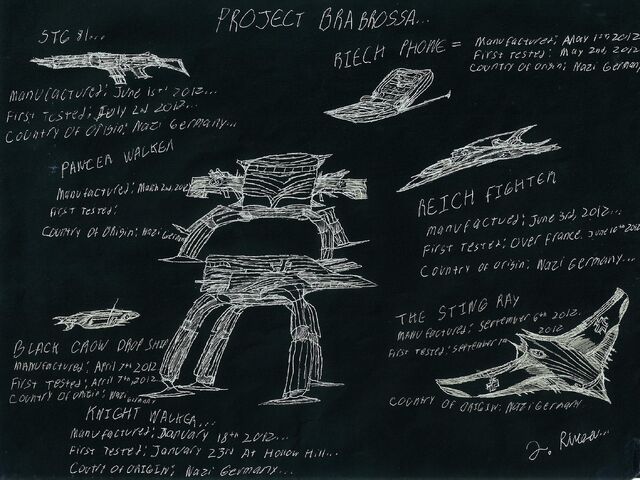 PROJECT BRABROSSA...
STG 81...
Manufactured; June 15th 2012...
First Tested; July 2nd 2012...
Country Of Origin; Nazi Germany...
RIECH PHONE =
Manufactured; May 1st 2012
First Tested; May 2nd, 2012
Country Of Origin; Nazi Germany
PANZER WALKER
Manufactured; March 2nd, 2012
First Tested;
Country Of Origin; Nazi Germany
REICH FIGHTER
manufactued; June 3rd, 2012...
First Tested; Over France, June 10th 2012
Country Of Origin; Nazi Germany...
THE STING RAY
Manufactured; September 6th 2012.
First Tested; September 2012
COUNTRY OF ORIGIN; Nazi Germany
BLACK CROW DROP SHIP
Manufactured; April 7th 2012
First Tested; April 7th 2012
Country Of Origin; Nazi Germany
KNIGHT WALKER...
Manufactured; January 18th 2012...
First Tested; January 23rd At Hollow Hill...
Coutry Of ORIGIN; Nazi Germany...